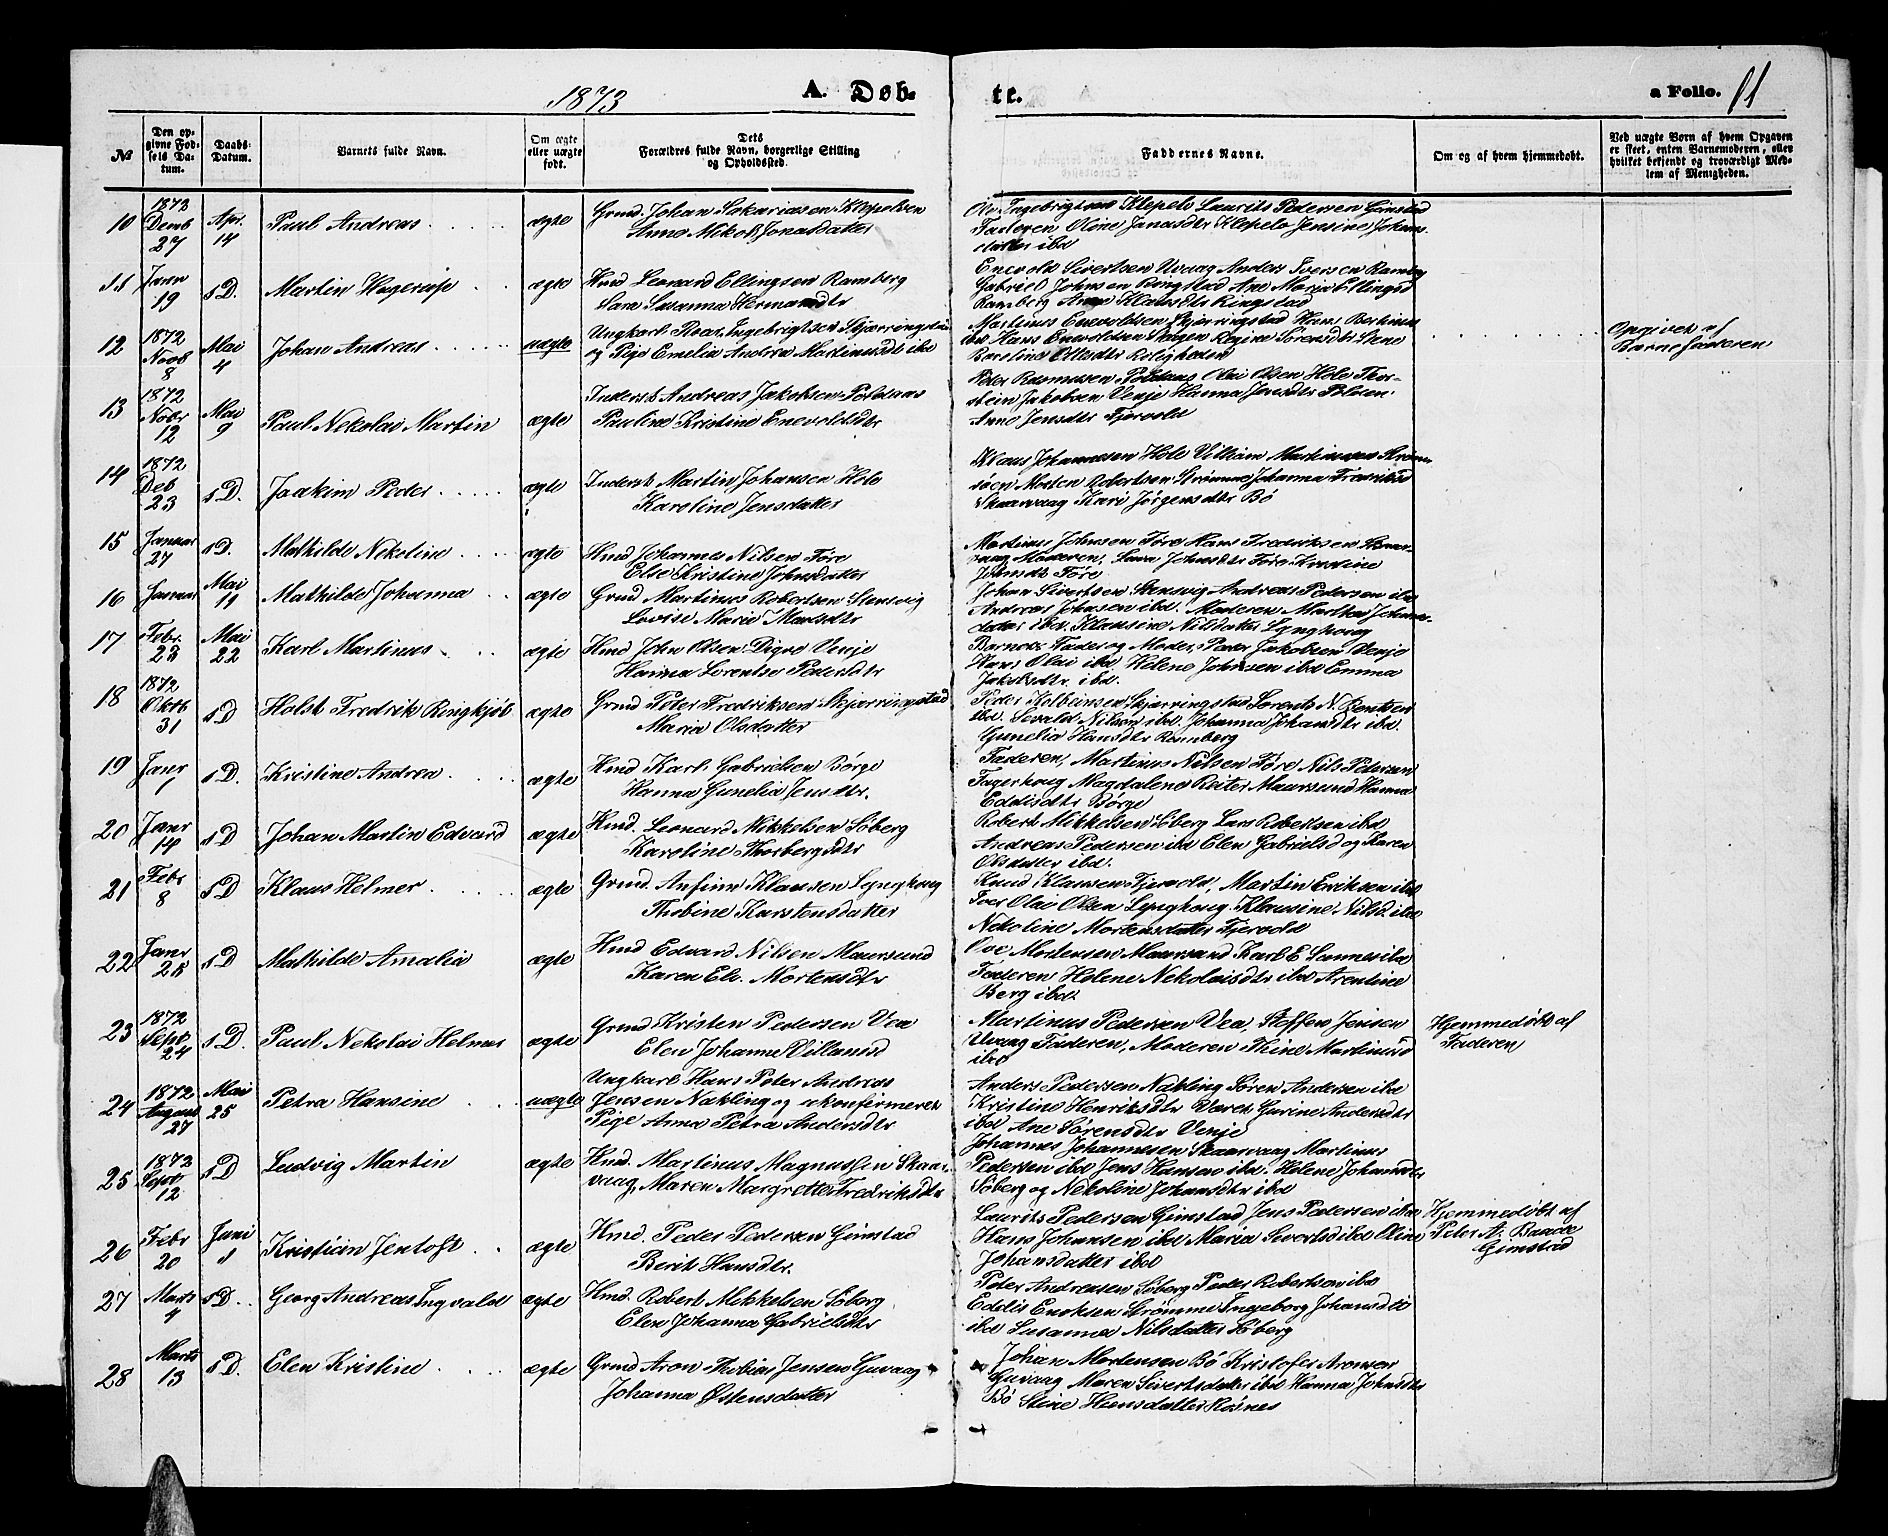 1873 A. Døb- te. a Folio. 11
№
Den opgivne Fødsels Datum.
Daabs-Datum.
Barnets fulde Navn.
Om ægte eller uægte født.
Dets Forældres fulde Navn, borgerlige Stilling og Opholdssted.
Faddernes Navne.
Om og af hvem hjemmedøbt.
Ved uægte Børn af hvem Opgaven er skeet, enten Barnemoderen, eller hvilket bekjendt og troværdigt Medlem af Menigheden.
10 1872 Demb 27 Apr. 14 Paul Andreas ægte
Grmd. Johan Sakariasen Klepelsen
Anne Nikol. Jonasdatter
Ole Ingebrigtsen Klepels Laurits Pedersen Gimstad
Faderen Oline Jonasdtr Klepels Jensine Johans
datter ibd
11 Janr 19 s D. Martin Hagerup ægte
Hmd Leonard Ellingsen Ramberg
Sara Susanna Hermansdtr
Enevold Sivertsen Uvaag Anders Iversen Ramberg
Gabriel Johnsen Ringstad Ane Maria Ellingsd
Ramberg Anne Klausdtr Ringstad
12 1872 Novb 8 Mai 4 Johan Andreas uægte
Ungkarl Roar Ingebrigtsen Skjærringstad
og Pige Emelia Andrea Martinusdt ibd
Martinus Enevoldsen Skjærringstad Hans Bertinus
ibd Hans Enevoldsen Skagen Regine Sørensdtr Sene
Karoline Olesdtr Roligheden
Opgivet af
Barnefaderen
13 1872 Novbr 12 Mai 9 Paul Nekolai Martin ægte
Inderst Andreas Jakobsen Pollenaas
Pauline Kristine Enevoldsdtr
Peder Rasmussen Olai Olsen Hole Thor-
stein Jakobsen Venje Hanna Jensdtr Pollen
Anne Jensdtr Fjervold
14 1872 Deb 23 s D. Joakim Peder ægte
Inderst Martin Johansen Hole
Karoline Jensdatter
Klaus Johannessen Hole Villiam Martinussen
Morten Robertsen Strømme Johanna Fredriksd
Skaarvaag Kari Jørgensdtr Bø
15 Januar 27 s D. Mathilde Nekoline ægte
Hmd Johannes Nilsen Føre
Else Kristine Johnsdatter
Martinus Johnsen Føre Hans Fredriksen
Moderen, Sara Johnsdtr Føre Kristine
Johnsdt Føre
16 Januar Mai 11 Mathilde Johanna ægte
Grmd Martinus Robertsen Stensvig
Lovise Marie Madsdtr
Johan Sivertsen Stensvig Andreas Pedersen ibd
Andreas Johnsen ibd. Moderen Martha Johans-
datter ibd. Klausine Nilsdatter Lynghoug
17 Febr. 23 Mai 22 Karl Martinus ægte
Hmd John Olsen Digre Venje
Hanna Lorentse Pedersdtr
Barnets Fader og Moder, Peder Jakobsen Venje
Hans Olai ibd. Helene Johnsen ibd Emma
Jakobsdtr. ibd.
18 1872 Oktb 31 s D Holst Fredrik Ringkjøb ægte
Grmd Peter Fredriksen Skjærringstad
Maria Olsdatter
Peder Kolbeinsen Skjærringstad Lorents N. Bentsen
ibd. Sevald Nilsen ibd. Johanna Johansdtr ibd.
Gunelia Hansdtr Ramberg
19 Janr 1 s D. Kristine Andrea ægte
Hmd Karl Gabrielsen Børge
Hanna Gunelia Jensdtr.
Faderen, Martinus Nilsen Føre Nils Pedersen
Fagerhoug Magdalene Reiter Maursund Hanna
Eddisdtr Børge
20 Janr 14 s D Johan Martin Edvard ægte
Hmd. Leonard Mikkelsen Søberg
Karoline Thorbergsdtr
Robert Mikkelsen Søberg Lars Robertsen ibd
Andreas Pedersen ibd Elen Gabrielsd og Karen
Olsdatter ibd.
21 Febr 8 s D Klaus Helmer ægte
Grmd. Anfinn Klausen Lynghoug
Thobine Karstensdatter
Knud Klausen Fjervold, Martin Eriksen ibd
Iver Olai Olsen Lynghoug. Klausine Nilsd. ibd
Nekoline Mortensdatter Fjervold
22 Janr 28 s D Mathilde Amalia ægte
Hmd Edvard Nilsen Maursund
Karen El. Mortensdtr
Ove Mortensen Maursund Karl E Sennes ibd
Faderen Helene Nekolaisdtr ibd Arentine
Berg ibd.
23 1872 Septr 24 s D. Paul Nekolai Helmer ægte
Grmd Kristen Pedersen Vea
Elen Johanne Villumsd
Martinus Pedersen Vea Steffen Jensen
Uvaag Faderen, Moderen Thine Martinusd
ibd
Hjemmedøbt af
Faderen
24 1872 August 27 Mai 25 Petra Hansine uægte
Ungkarl Hans Peter Andreas
Jensen Nækling og ukonfirmeret
Pige Anna Petra Andersdtr
Anders Pedersen Nækling Søren Andersen ibd
Kristine Henriksdtr Varet Gurine Andersdtr
ibd Ane Sørensdtr Venje
25 1872 Septr 12 s D Ludvig Martin ægte
Hmd. Martinus Magnussen Skaar-
vaag, Maren Margrette Fredriksdtr
Johannes Johannesen Skaarvaag Martinus
Pedersen ibd Jens Hansen ibd. Helene Johansdtr
Søberg og Nekoline Johansdtr ibd
26 Febr 20 Juni 1 Kristian Jentoft ægte
Hmd. Peder Pedersen Gimstad
Berit Hansdtr.
Laurits Pedersen Gimstad Jens Pedersen ibd
Hans Johansen ibd Maria Sivertsd ibd Oline
Johansdatter ibd
Hjemmedøbt af
Peter A. Baade
Gimstad
27 Marts 4 s D. Georg Andreas Ingvald ægte
Hmd. Robert Mikkelsen Søberg
Elen Johanna Gabrielsdtr
Peter Andreasen Søberg Peder Robertsen ibd
Eddis Enoksen Strømme Ingeborg Johansdtr
ibd Susanna Nilsdatter Søberg
28 Marts 13 s D. Elen Kristine ægte
Grmd Aron Thobias Jensen Guvaag
Johanna Østensdatter
Johan Mortensen Bø Kristofer Aronsen
Guvaag Maren Sivertsdatter ibd Hanna Johnsdtr
Bø Stine Hansdatter Røsnes